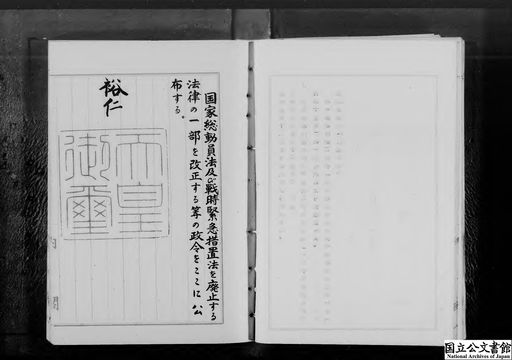 国家総動員法及び戦時緊急措置法を廃止する
法律の一部を改正する等の政令をここに公
布する。
裕仁
天皇
御璽
国立公文書館
National Archives of Japan